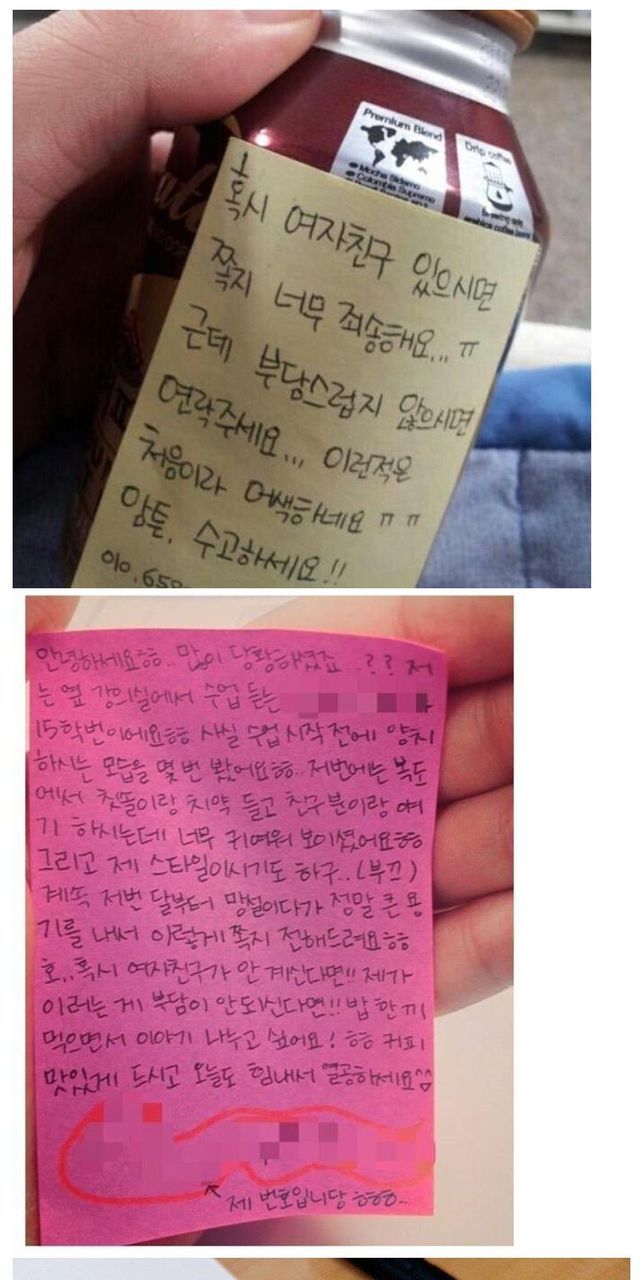 Premium Blend
Mocha Sidamo
Colombia Supremo
Drip coffee
혹시 여자친구 있으시면
쪽지 너무 죄송해요... ㅠ
근데 부담스럽지 않으시면
연락주세요... 이런적은
처음이라 어색하네요 ㅠㅠ
암튼, 수고하세요!!
010.650
안녕하세요ㅎㅎ.. 많이 당황하셨죠..?? 저
는 옆 강의실에서 수업 듣는
15학번이에요ㅎㅎ 사실 수업 시작 전에 양치
하시는 모습을 몇 번 봤어요ㅎㅎ.. 저번에는 복도
에서 칫똘이랑 치약 들고 친구분이랑 얘
기 하시는데 너무 귀여워 보이셨어요ㅎㅎ
그리고 제 스타일이시기도 하구..(부끄)
계속 저번 달부터 망설이다가 정말 큰 용
기를 내서 이렇게 쪽지 전해드려요ㅎㅎ
호..혹시 여자친구가 안 계신다면!! 제가
이러는 게 부담이 안되신다면!! 밥 한 끼
먹으면서 이야기 나누고 싶어요! ㅎㅎ 커피
맛있게 드시고 오늘도 힘내서 열공하세요^^
제 번호입니당 ㅎㅎㅎ..